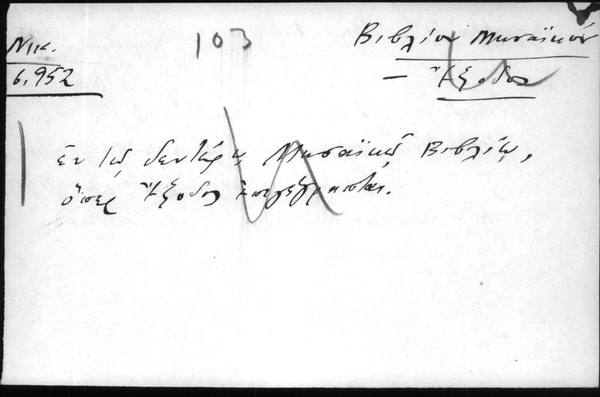 Νικ. 103 Βιβλίον Μωσαϊκόν
6,952 — Ἔξοδος
ἐν τῷ δευτέρῳ Μωσαϊκῷ Βιβλίῳ,
ὅπερ Ἔξοδος ἐπιγέγραπται.